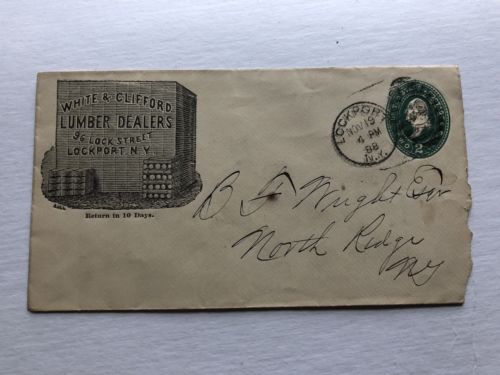 WHITE & CLIFFORD
LUMBER DEALERS
96 LOCK STREET
LOCKPORT, N.Y.
Return in 10 Days.
LOCKPORT
NOV 19
4 PM
88
N.Y.
2
B F Wright Esq
North Ridge
NY